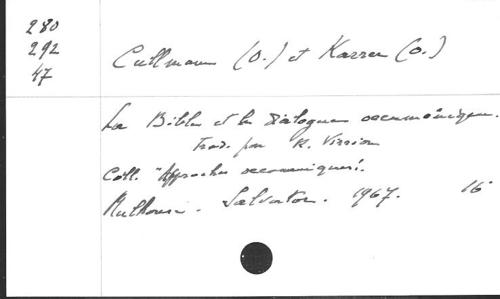 280
292
47
Cullmann (O.) et Karrer (O.)
La Bible et le dialogue oecuménique.
Trad. par R. Virrion
Coll. "Approches oecuméniques".
Mulhouse. Salvator. 1967. 16°